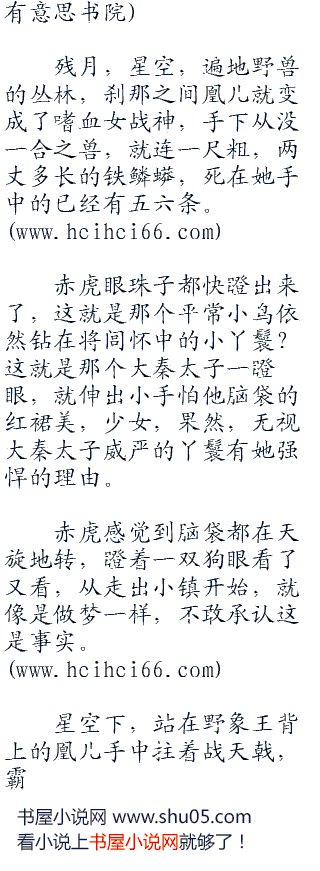 有意思书院)
残月，星空，遍地野兽
的丛林，刹那之间凰儿就变
成了嗜血女战神，手下从没
一合之兽，就连一尺粗，两
丈多长的铁鳞蟒，死在她手
中的已经有五六条。
(www.hcihci66.com)
赤虎眼珠子都快瞪出来
了，这就是那个平常小鸟依
然钻在将闾怀中的小丫鬟？
这就是那个大秦太子一瞪
眼，就伸出小手怕他脑袋的
红裙美，少女，果然，无视
大秦太子威严的丫鬟有她强
悍的理由。
赤虎感觉到脑袋都在天
旋地转，瞪着一双狗眼看了
又看，从走出小镇开始，就
像是做梦一样，不敢承认这
是事实。
(www.hcihci66.com)
星空下，站在野象王背
上的凰儿手中拄着战天戟，
霸
书屋小说网 www.shu05.com
看小说上书屋小说网就够了！